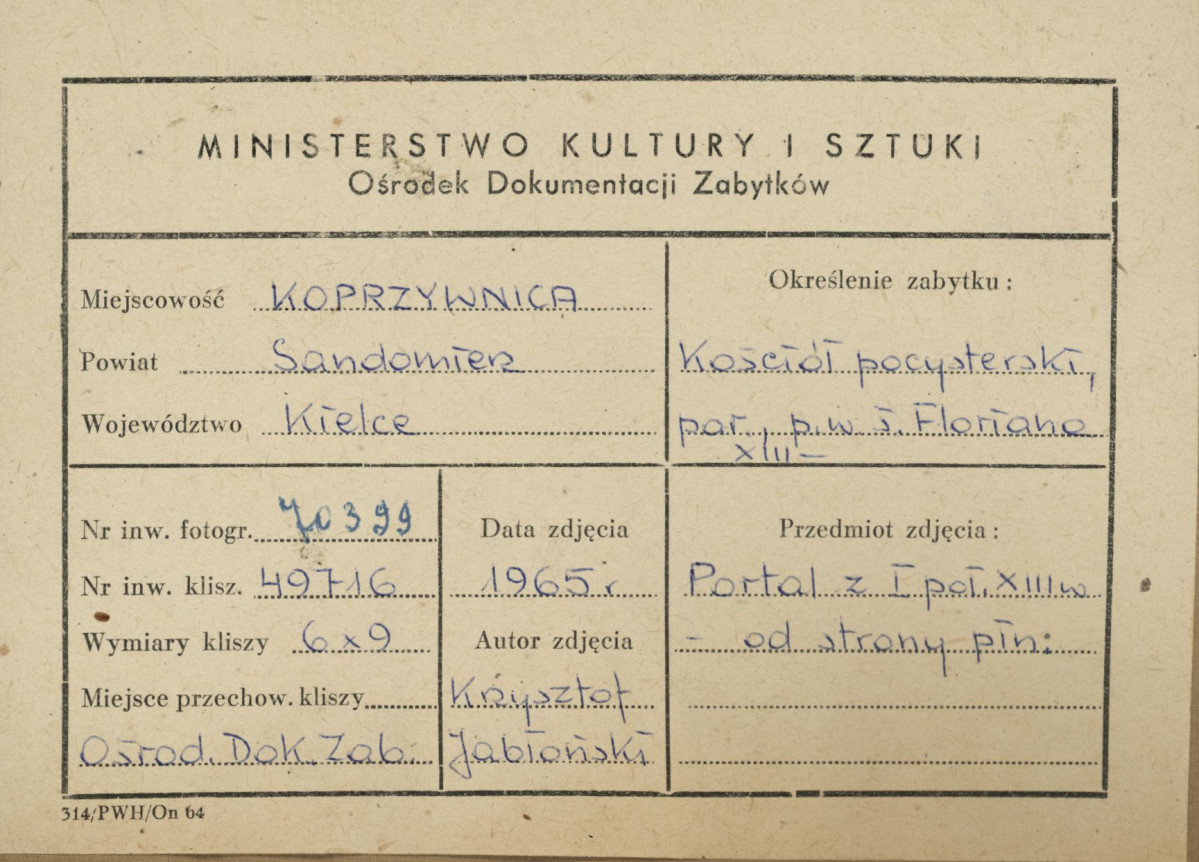 MINISTERSTWO KULTURY I SZTUKI
Ośrodek Dokumentacji Zabytków
Miejscowość KOPRZYWNICA
Powiat Sandomierz
Województwo Kielce
Określenie zabytku:
Kościół pocysterski,
par., p.w ś. Floriana
XIII –
Nr inw. fotogr. 70399
Nr inw. klisz. 49716
Wymiary kliszy 6x9
Miejsce przechow. kliszy
Ośrod. Dok. Zab.
Data zdjęcia
1965 r
Autor zdjęcia
Krzysztof
Jabłoński
Przedmiot zdjęcia:
Portal z I poł. XIII w
- od strony płn:
314/PWH/On 64